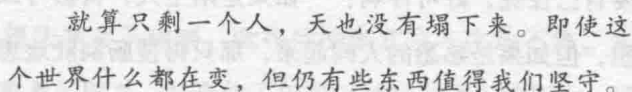 就算只剩一个人，天也没有塌下来。即使这
个世界什么都在变，但仍有些东西值得我们坚守。